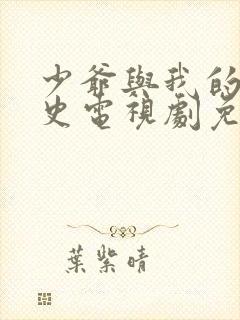 少爺與我的
史電視劇免
葉紫晴